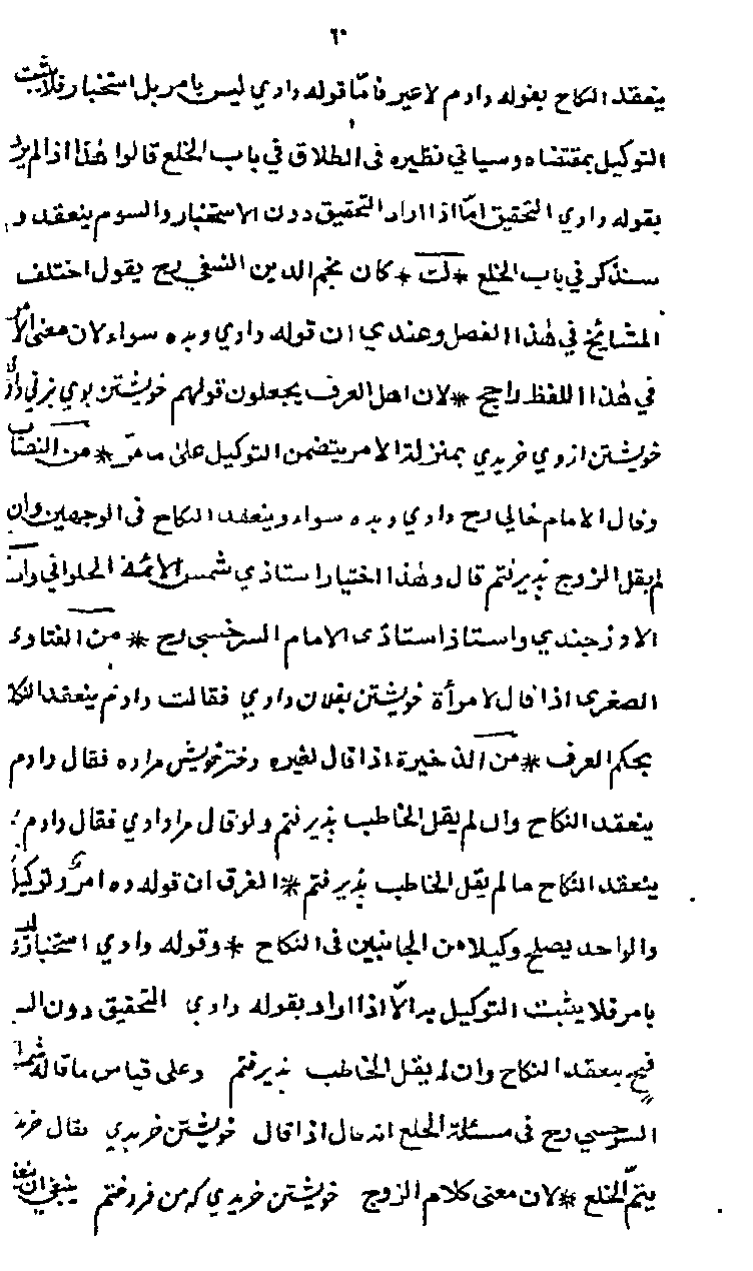 ٦٠
ينعقد النكاح بقوله دادم لاغير فامّا قوله دادي ليس بامر بل استخبار فلا يثبت
التوكيل بمقتضاه وسياتي نظيره فى الطلاق في باب الخلع قالوا هٰذا اذا لم يرد
بقوله دادي التحقيق امّا اذا اراد التحقيق دون الاستخبار والسوم ينعقد و
سنذكر في باب الخلع * لت * كان نجم الدين النسفي رح يقول اختلف
المشائخ في هٰذا الفصل وعندي ان قوله دادي وبده سواء لان معنى الامر
في هٰذا اللفظ راجح * لان اهل العرف يجعلون قولهم خويشتن بوي بزني دادي
خويشتن ازوي خريدي بمنزلة الامر يتضمن التوكيل على ما مرّ * من النصاب
وقال الامام خالي رح دادي وبده سواء وينعقد النكاح فى الوجهين وان
لم يقل الزوج پذيرفتم قال وهٰذا اختيار استاذي شمس الائمة الحلواني
الاوزجندي واستاذ استاذى الامام السرخسي رح * من الفتاوى
الصغرى اذا قال لامرأة خويشتن بفلان دادي فقالت دادم ينعقد النكاح
بحكم العرف * من الذخيرة اذا قال لغيره دختر خويش مراده فقال دادم
ينعقد النكاح وان لم يقل الخاطب پذيرفتم ولو قال مرا دادي فقال دادم
ينعقد النكاح ما لم يقل الخاطب پذيرفتم * الفرق ان قوله ده امر وتوكيل
والواحد يصلح وكيلا من الجانبين فى النكاح * وقوله دادي استخبار وليس
بامر فلا يثبت التوكيل به الّا اذا اراد بقوله دادي التحقيق دون
فح ينعقد النكاح وان لم يقل الخاطب پذيرفتم وعلى قياس ما قاله
السرخسي رح فى مسئلة الخلع انه قال اذا قال خويشتن خريدي فقال
يتمّ الخلع * لان معنى كلام الزوج خويشتن خريدي كه من فروختم ينبغي ان